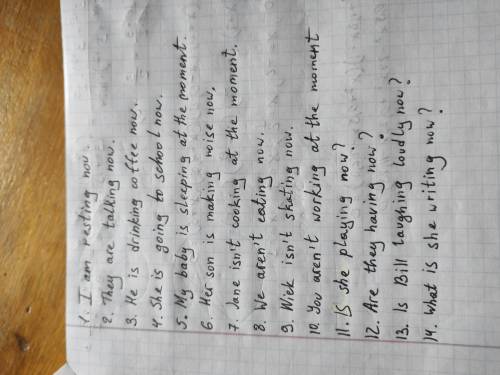 1. I am resting now.
2. They are talking now.
3. He is drinking coffee now.
4. She is going to school now.
5. My baby is sleeping at the moment.
6. Her son is making noise now.
7. Jane isn't cooking at the moment.
8. We aren't eating now.
9. Nick isn't skating now.
10. You aren't working at the moment
11. Is she playing now?
12. Are they having now?
13. Is Bill laughing loudly now?
14. What is she writing now?